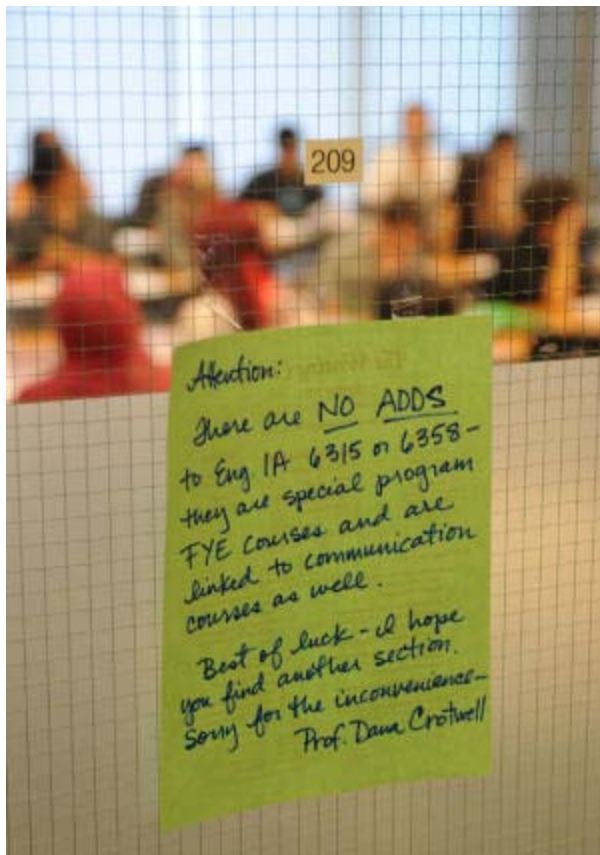 209
Attention:
There are NO ADDS
to Eng 1A 6315 or 6358-
they are special program
FYE courses and are
linked to communication
courses as well.
Best of luck - I hope
you find another section.
Sorry for the inconvenience-
Prof. Dana Crotwell